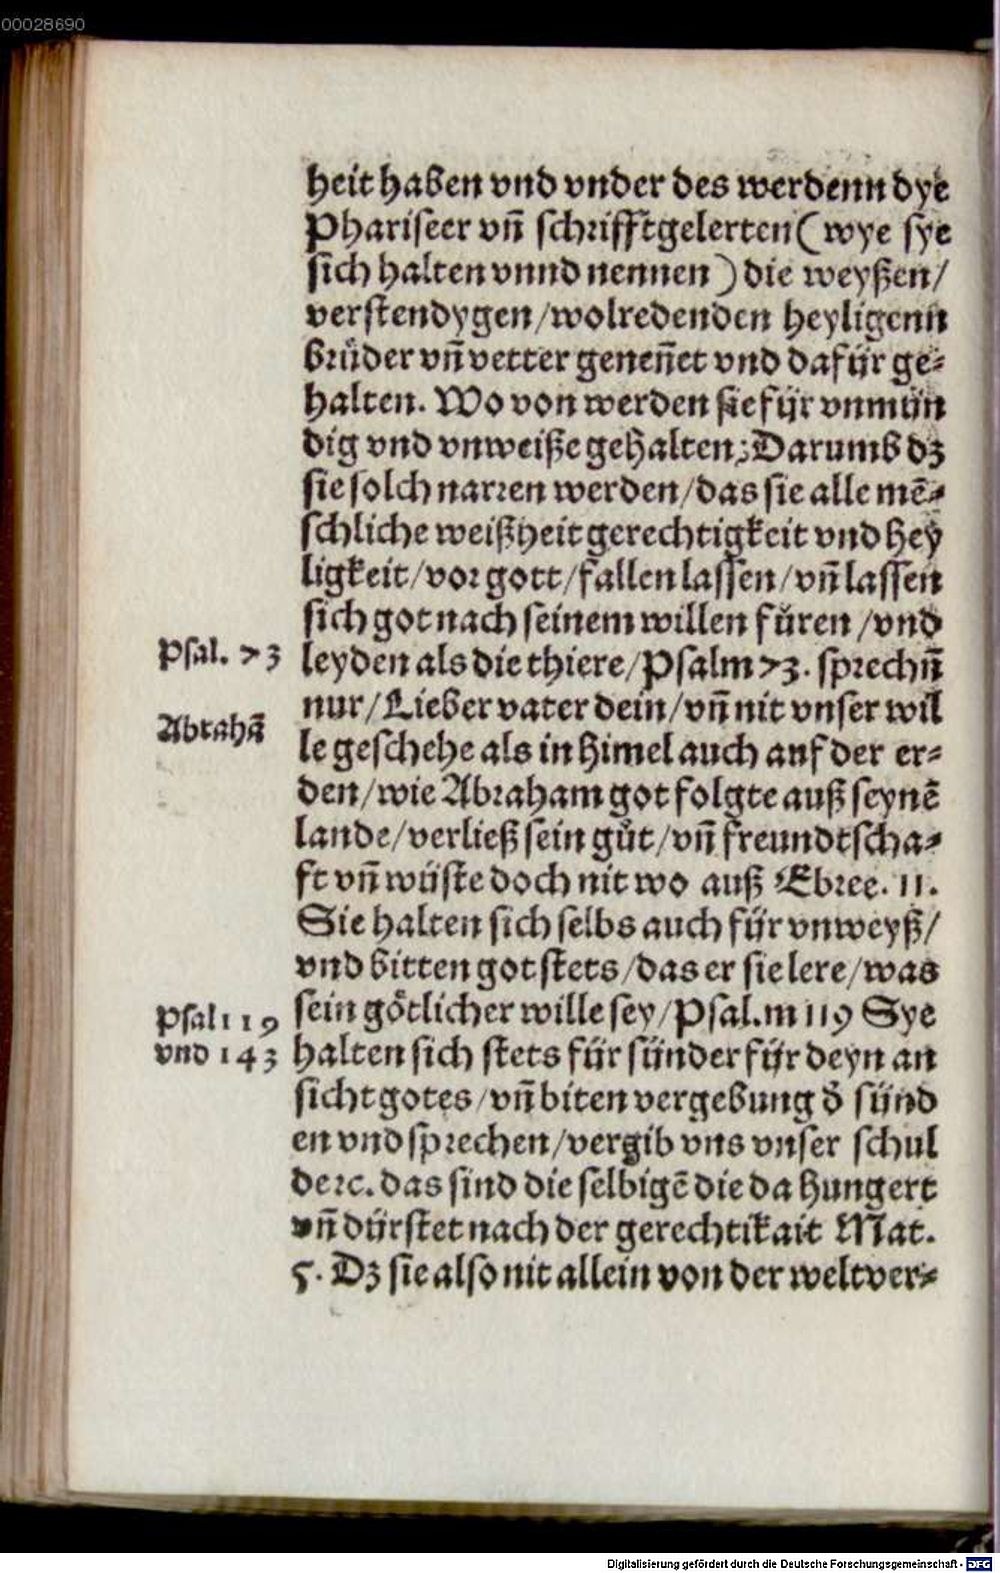 00028690
heit haben vnd vnder des werdenn dye
Phariseer vn̄ schrifftgelerten ( wye sye
sich halten vnnd nennen ) die weyßen /
verstendygen / wolredenden heyligenn
brüder vn̄ vetter genen̄et vnd dafür ge⸗
halten. Wo von werden sie für vnmün
dig vnd vnweiße gehalten ; Darumb dz
sie solch narren werden / das sie alle mē⸗
schliche weißheit gerechtigkeit vnd hey
ligkeit / vor gott / fallen lassen / vn̄ lassen
sich got nach seinem willen fůren / vnd
Psal. 73
leyden als die thiere / Psalm 73. sprechn̄
nur / Lieber vater dein / vn̄ nit vnser wil
Abrahā
le geschehe als in himel auch auf der er⸗
den / wie Abraham got folgte auß seynē
lande / verließ sein gůt / vn̄ freundtscha⸗
ft vn̄ wüste doch nit wo auß Ebree. 11.
Sie halten sich selbs auch für vnweyß /
vnd bitten got stets / das er sie lere / was
Psal 119
sein götlicher wille sey / Psal.m 119 Sye
vnd 143
halten sich stets für sünder für deyn an
sicht gotes / vn̄ biten vergebung ð sünd
en vnd sprechen / vergib vns vnser schul
de ꝛc. das sind die selbigē die da hungert
vn̄ dürstet nach der gerechtikait Mat.
5. Dz sie also nit allein von der welt ver⸗
Digitalisierung gefördert durch die Deutsche Forschungsgemeinschaft - DFG